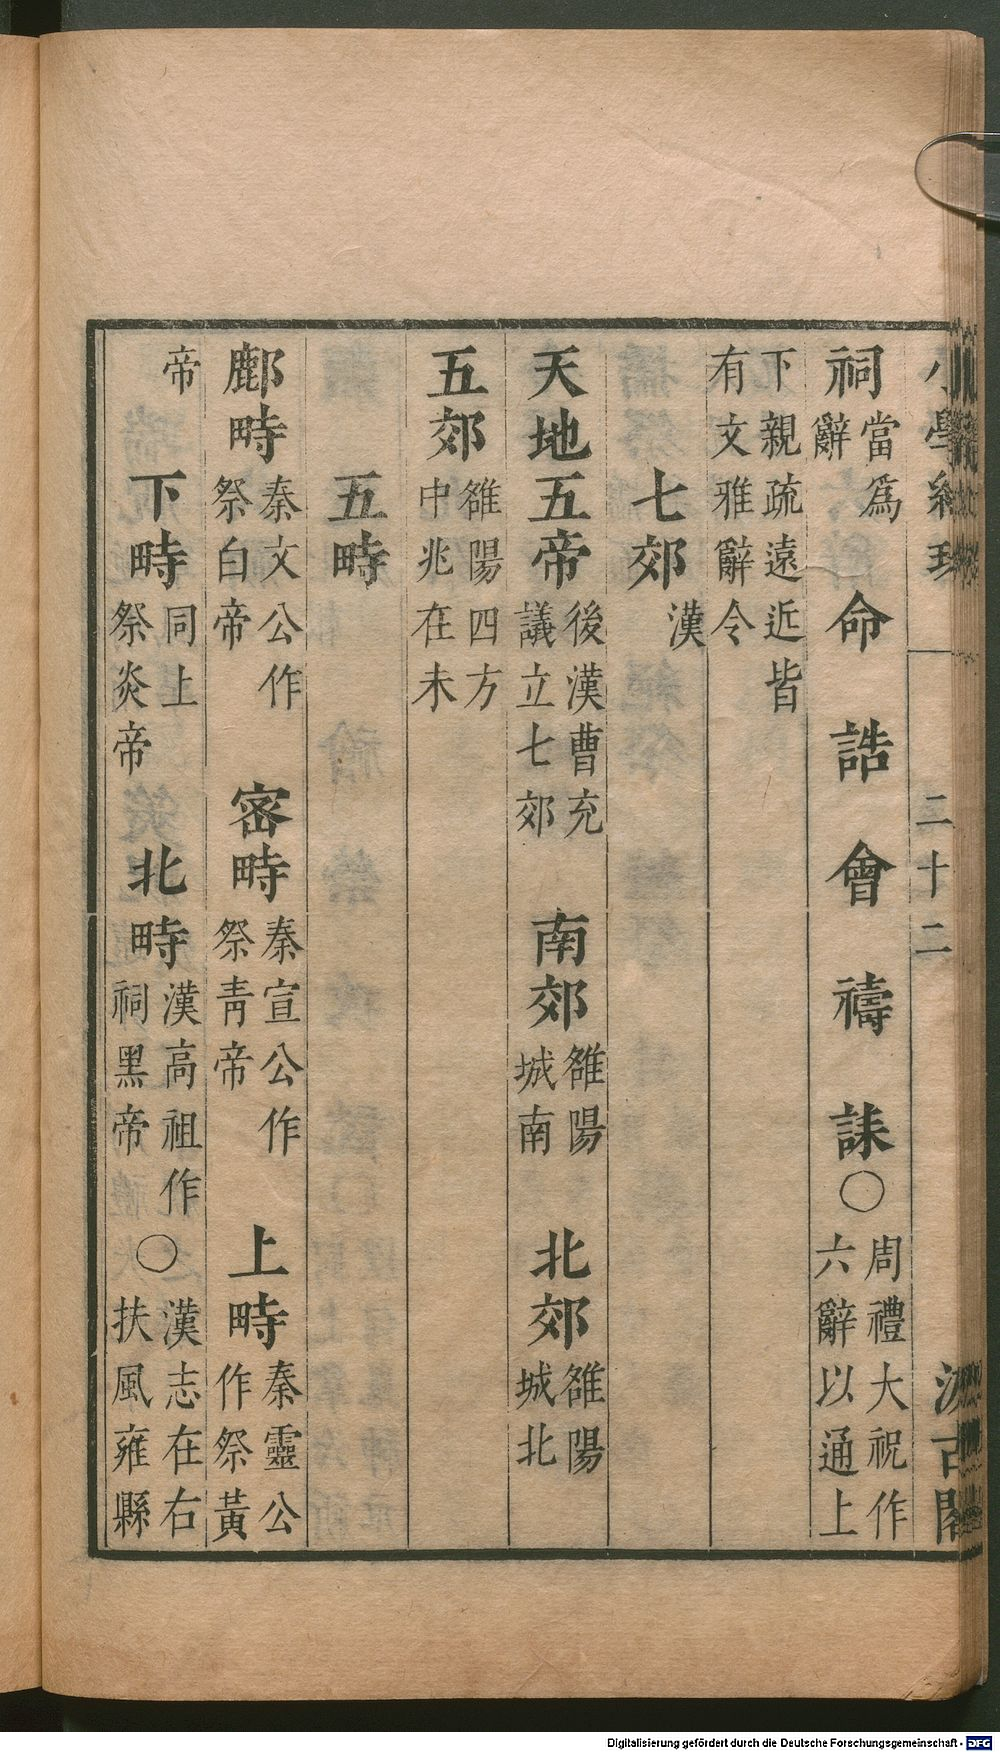 小學紺珠　二十二　汲古閣
祠當爲辭　命　誥　會　禱　誄○周禮大祝作六辭以通上
下親疏遠近皆有文雅辭令
七郊漢
天地五帝後漢曹充議立七郊　南郊雒陽城南　北郊雒陽城北
五郊雒陽四方中兆在未
五畤
鄜畤秦文公作祭白帝　密畤秦宣公作祭青帝　上畤秦靈公作祭黃
帝　下畤同上祭炎帝　北畤漢高祖作祠黑帝○漢志在右扶風雍縣
Digitalisierung gefördert durch die Deutsche Forschungsgemeinschaft - DFG